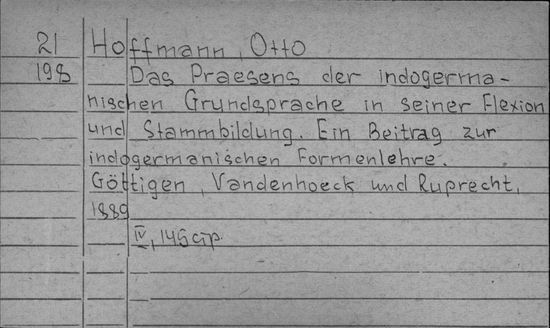 21 Hoffmann, Otto
198 Das Praesens der indogerma-
nischen Grundsprache in seiner Flexion
und Stammbildung. Ein Beitrag zur
indogermanischen Formenlehre.
Göttigen, Vandenhoeck und Ruprecht,
1889
IV, 145 стр.